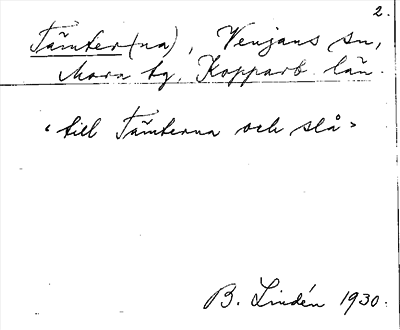 2.
Tämter(na), Venjans sn,
Mora tg. Kopparb. län.
‹ till Tämterna och slå ›
B. Lindén 1930.